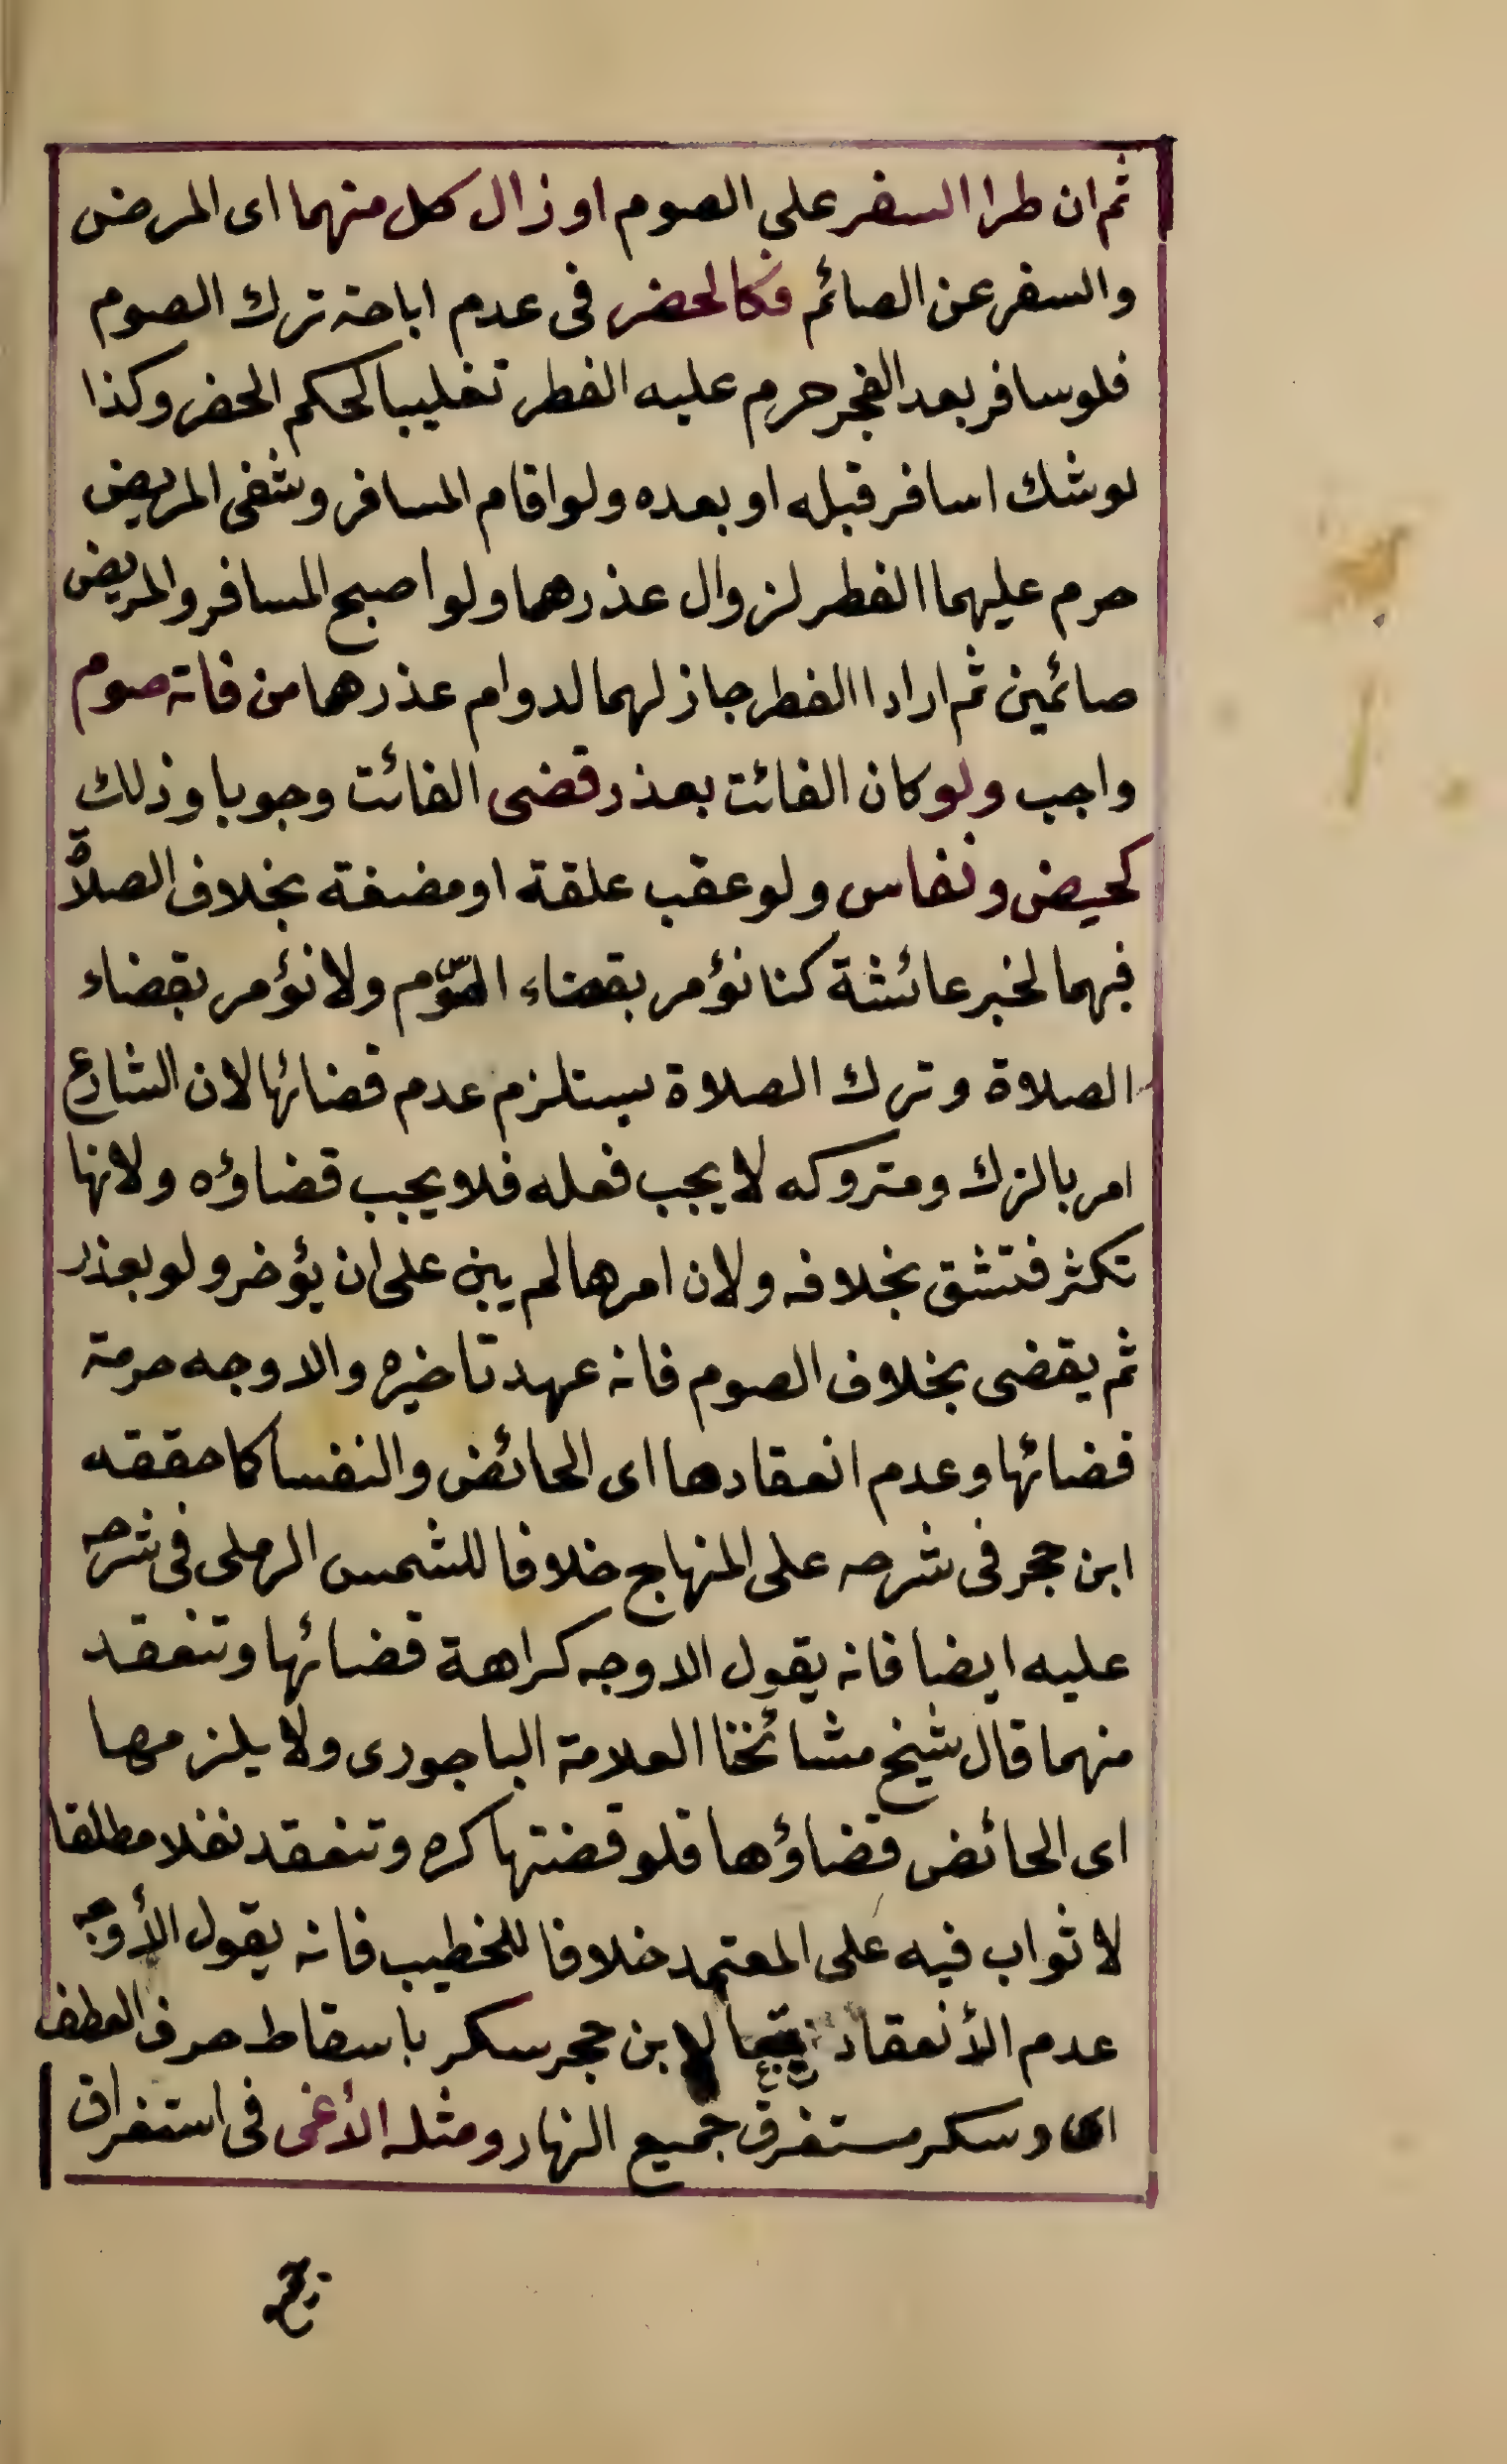 ثم ان طرا السفر على الصوم او زال كل منهما اى المرض
والسفر عن الصائم فكالحضر فى عدم اباحة ترك الصوم
فلو سافر بعد الفجر حرم عليه الفطر تغليبا لحكم الحضر وكذا
لو شك اسافر قبله او بعده ولو اقام المسافر وشفى المريض
حرم عليهما الفطر لزوال عذرهما ولو اصبح المسافر والمريض
صائمين ثم ارادا الفطر جاز لهما لدوام عذرهما من فاته صوم
واجب ولو كان الفائت بعذر قضى الفائت وجوبا وذلك
كحيض ونفاس ولو عقب علقة او مضغة بخلاف الصلاة
فيهما لخبر عائشة كنا نؤمر بقضاء الصّوم ولا نؤمر بقضاء
الصلاة وترك الصلاة يستلزم عدم قضائها لان الشارع
امر بالترك ومتروكه لا يجب فعله فلا يجب قضاؤه ولانها
تكثر فتشق بخلافه ولان امرها لم يبن على ان يؤخر ولو بعذر
ثم يقضى بخلاف الصوم فانه عهد تاخيره والاوجه حرمة
قضائها وعدم انعقادها اى الحائض والنفسا كما حققه
ابن حجر فى شرحه على المنهاج خلافا للشمس الرملى فى شرحه
عليه ايضا فانه يقول الاوجه كراهة قضائها وتنعقد
منهما قال شيخ مشائخنا العلامة الباجورى ولا يلزمها
اى الحائض قضاؤها فلو قضتها كره وتنعقد نفلا مطلقا
لا ثواب فيه على المعتمد خلافا للخطيب فانه يقول الأوجه
عدم الأنعقاد تبعا لابن حجر سكر باسقاط حرف العطف
اى وسكر مستغرق جميع النهار ومثله الأغمى فى استغراق